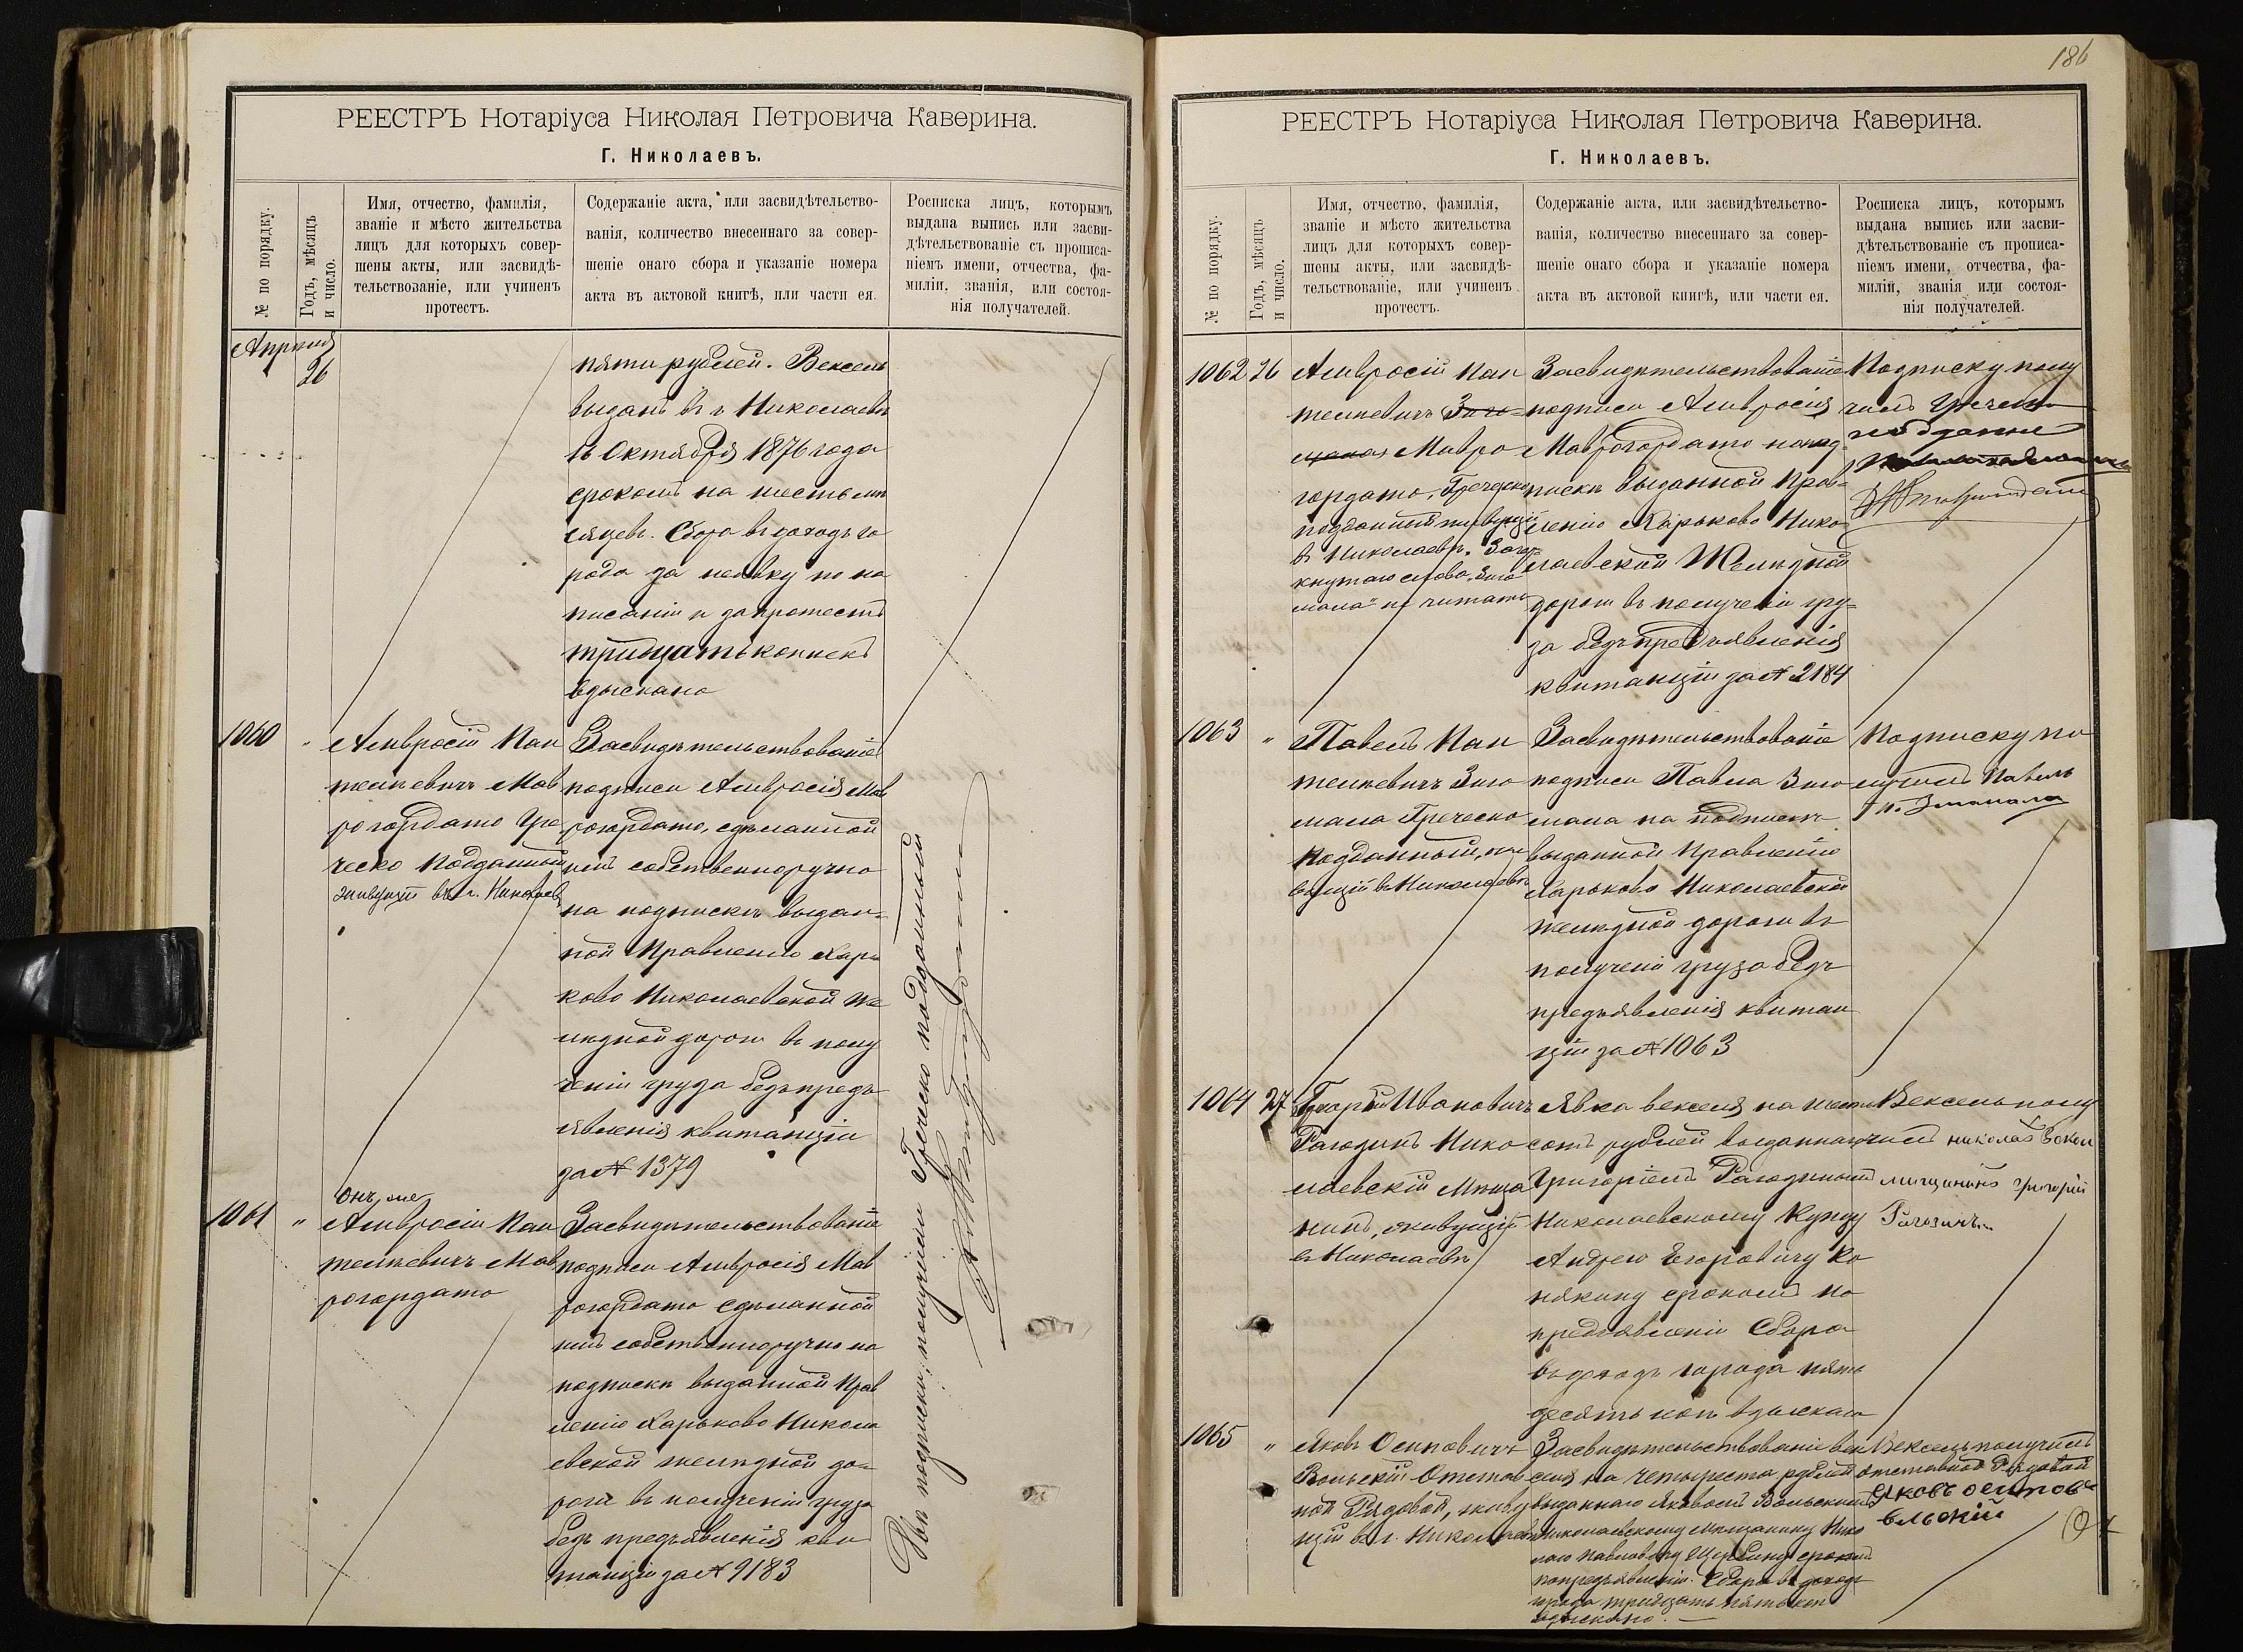 РЕЕСТРЪ Нотаріуса Николая Петровича Каверина.
Г. Николаевъ.
№ по порядку.
Годъ, мѣсяцъ
и число.
Имя, отчество, фамилія,
званіе и мѣсто жительства
лицъ для которыхъ совер-
шены акты, или засвидѣ-
тельствованіе, или учиненъ
протестъ.
Содержаніе акта, или засвидѣтельство-
ванія, количество внесеннаго за совер-
шеніе онаго сбора и указаніе номера
акта въ актовой книгѣ, или части ея.
Росписка лицъ, которымъ
выдана выпись или засви-
дѣтельствованіе съ прописа-
ніемъ имени, отчества, фа-
миліи, званія, или состоя-
нія получателей.
Апрѣля
26
пяти рублей. Вексель
выданъ въ г Николаевѣ
16 Октября 1876 года
срокомъ на шесть мѣ
сяцевъ. Сбора въ доходъ го
рода за неявку по на
писанію и за протестъ
тридцать копѣекъ
взыскано
1060
"
Амвросій Пан
телѣевичъ Мав
рогордато Гре
ческо подданный
живущій въ г. Николаевѣ
Засвидѣтельствованіе
подписи Амвросія Мав
рогордато, сдѣланной
имъ собственноручно
на подпискѣ выдан-
ной Правленію Харь
ково Николаевской же
лѣзной дороги въ полу
ченіи груза безъ предъ
явленія квитанціи
за № 1379
1061
"
Онъ же
Амвросій Пан
телѣевичъ Мав
рогордато
Засвидѣтельствованіе
подписи Амвросія Мав
рогордато сдѣланной
имъ собственноручно на
подпискѣ выданной Прав
ленію Харьково Никола
евской желѣзной до-
роги въ полученіи груза
безъ предъявленія кви
танціи за № 9183
Двѣ подписки получилъ Греческо подданный
186
РЕЕСТРЪ Нотаріуса Николая Петровича Каверина.
Г. Николаевъ.
№ по порядку.
Годъ, мѣсяцъ
и число.
Имя, отчество, фамилія,
званіе и мѣсто жительства
лицъ для которыхъ совер-
шены акты, или засвидѣ-
тельствованіе, или учиненъ
протестъ.
Содержаніе акта, или засвидѣтельство-
ванія, количество внесеннаго за совер-
шеніе онаго сбора и указаніе номера
акта въ актовой книгѣ, или части ея.
Росписка лицъ, которымъ
выдана выпись или засви-
дѣтельствованіе съ прописа-
ніемъ имени, отчества, фа-
милій, званія или состоя-
нія получателей.
1062
26
Амвросій Пан
телѣевичъ
Мавро
гордато, Греческо
подданный живущій
въ Николаевѣ. Зачер
кнутаго слова
не читать
Засвидѣтельствованіе
подписи Амвросія
Маврогордато на под-
пискѣ выданной Прав-
ленію Харьково Нико
лаевской Желѣзной
дороги въ полученіи гру-
за безъ предъявленія
квитанціи за № 2184
Подписку полу
чилъ
1063
"
Павелъ Пан
телѣевичъ Зиго
мала Греческо
подданный, жи
вущій въ Николаевѣ
Засвидѣтельствованіе
подписи Павла Зиго
мала на подпискѣ
выданной Правленію
Харьково Николаевской
желѣзной дороги въ
полученіи груза безъ
предъявленія квитан
ціи за № 1063
Подписку по
лучилъ Павелъ
1064
27
Григорій Ивановичъ
Рагозинъ Нико
лаевскій Мѣща
нинъ, живущій
въ Николаевѣ
Явка векселя на шесть
сотъ рублей выданнаго
Григоріемъ Рагозинымъ
Николаевскому Купцу
Андрею Егоровичу Ко
някину срокомъ по
предъявленіи Сбора
въ доходъ города пять
десятъ коп взыскано
Вексель полу
чилъ
мищининъ григорій
Рагозинъ
1065
"
Яковъ Осиповичъ
Вольскій Отстав
ной Рядовой, живу
щій въ г. Николаевѣ
Засвидѣтельствованіе век
селя на четыреста рублей
выданнаго Яковомъ Вольскимъ
Николаевскому мѣщанину Нико
лаю Павловичу Щербину срокомъ
по предъявленіи. Сбора въ доходъ
города тридцать пять коп
взыскано. —
Вексель получилъ
отставной Рядовой
Яковъ осипов